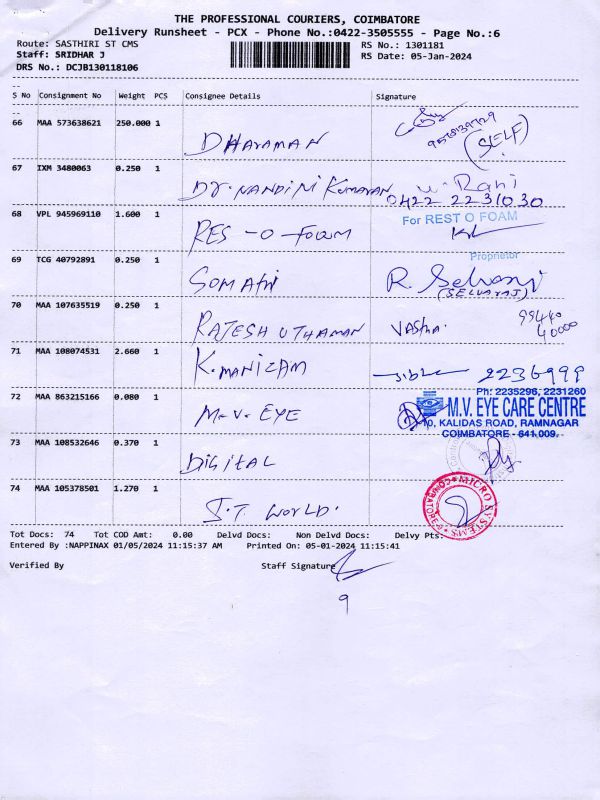 THE PROFESSIONAL COURIERS, COIMBATORE
Delivery Runsheet - PCX - Phone No.:0422-3505555 - Page No.:6
Route: SASTHIRI ST CMS RS No.: 1301181
Staff: SRIDHAR J RS Date: 05-Jan-2024
DRS No.: DCJB130118106
S No Consignment No Weight PCS Consignee Details Signature
66 MAA 573638621 250.000 1 DHARAMAN (SELF)
67 IXM 3480063 0.250 1 Dr. NANDINI Kumaran Rani
0422 2231030
68 VPL 945969110 1.600 1 RES-O-foam For REST O FOAM
Proprietor
69 TCG 40792891 0.250 1 R. Selvaraj
(SELVARAJ)
70 MAA 107635519 0.250 1 RAJESH UTHAMAN 99440
40000
71 MAA 108074531 2.660 1 K. MANICAM 2236999
72 MAA 863215166 0.080 1 M.V. EYE Ph: 2235296, 2231260
M.V. EYE CARE CENTRE
10, KALIDAS ROAD, RAMNAGAR
COIMBATORE - 641 009.
73 MAA 108532646 0.370 1 DIGITAL
74 MAA 105378501 1.270 1 S.T. WORLD. MICRO SYSTEMS
Tot Docs: 74 Tot COD Amt: 0.00 Delvd Docs: Non Delvd Docs: Delvy Pts:
Entered By :NAPPINAX 01/05/2024 11:15:37 AM Printed On: 05-01-2024 11:15:41
Verified By Staff Signature
9